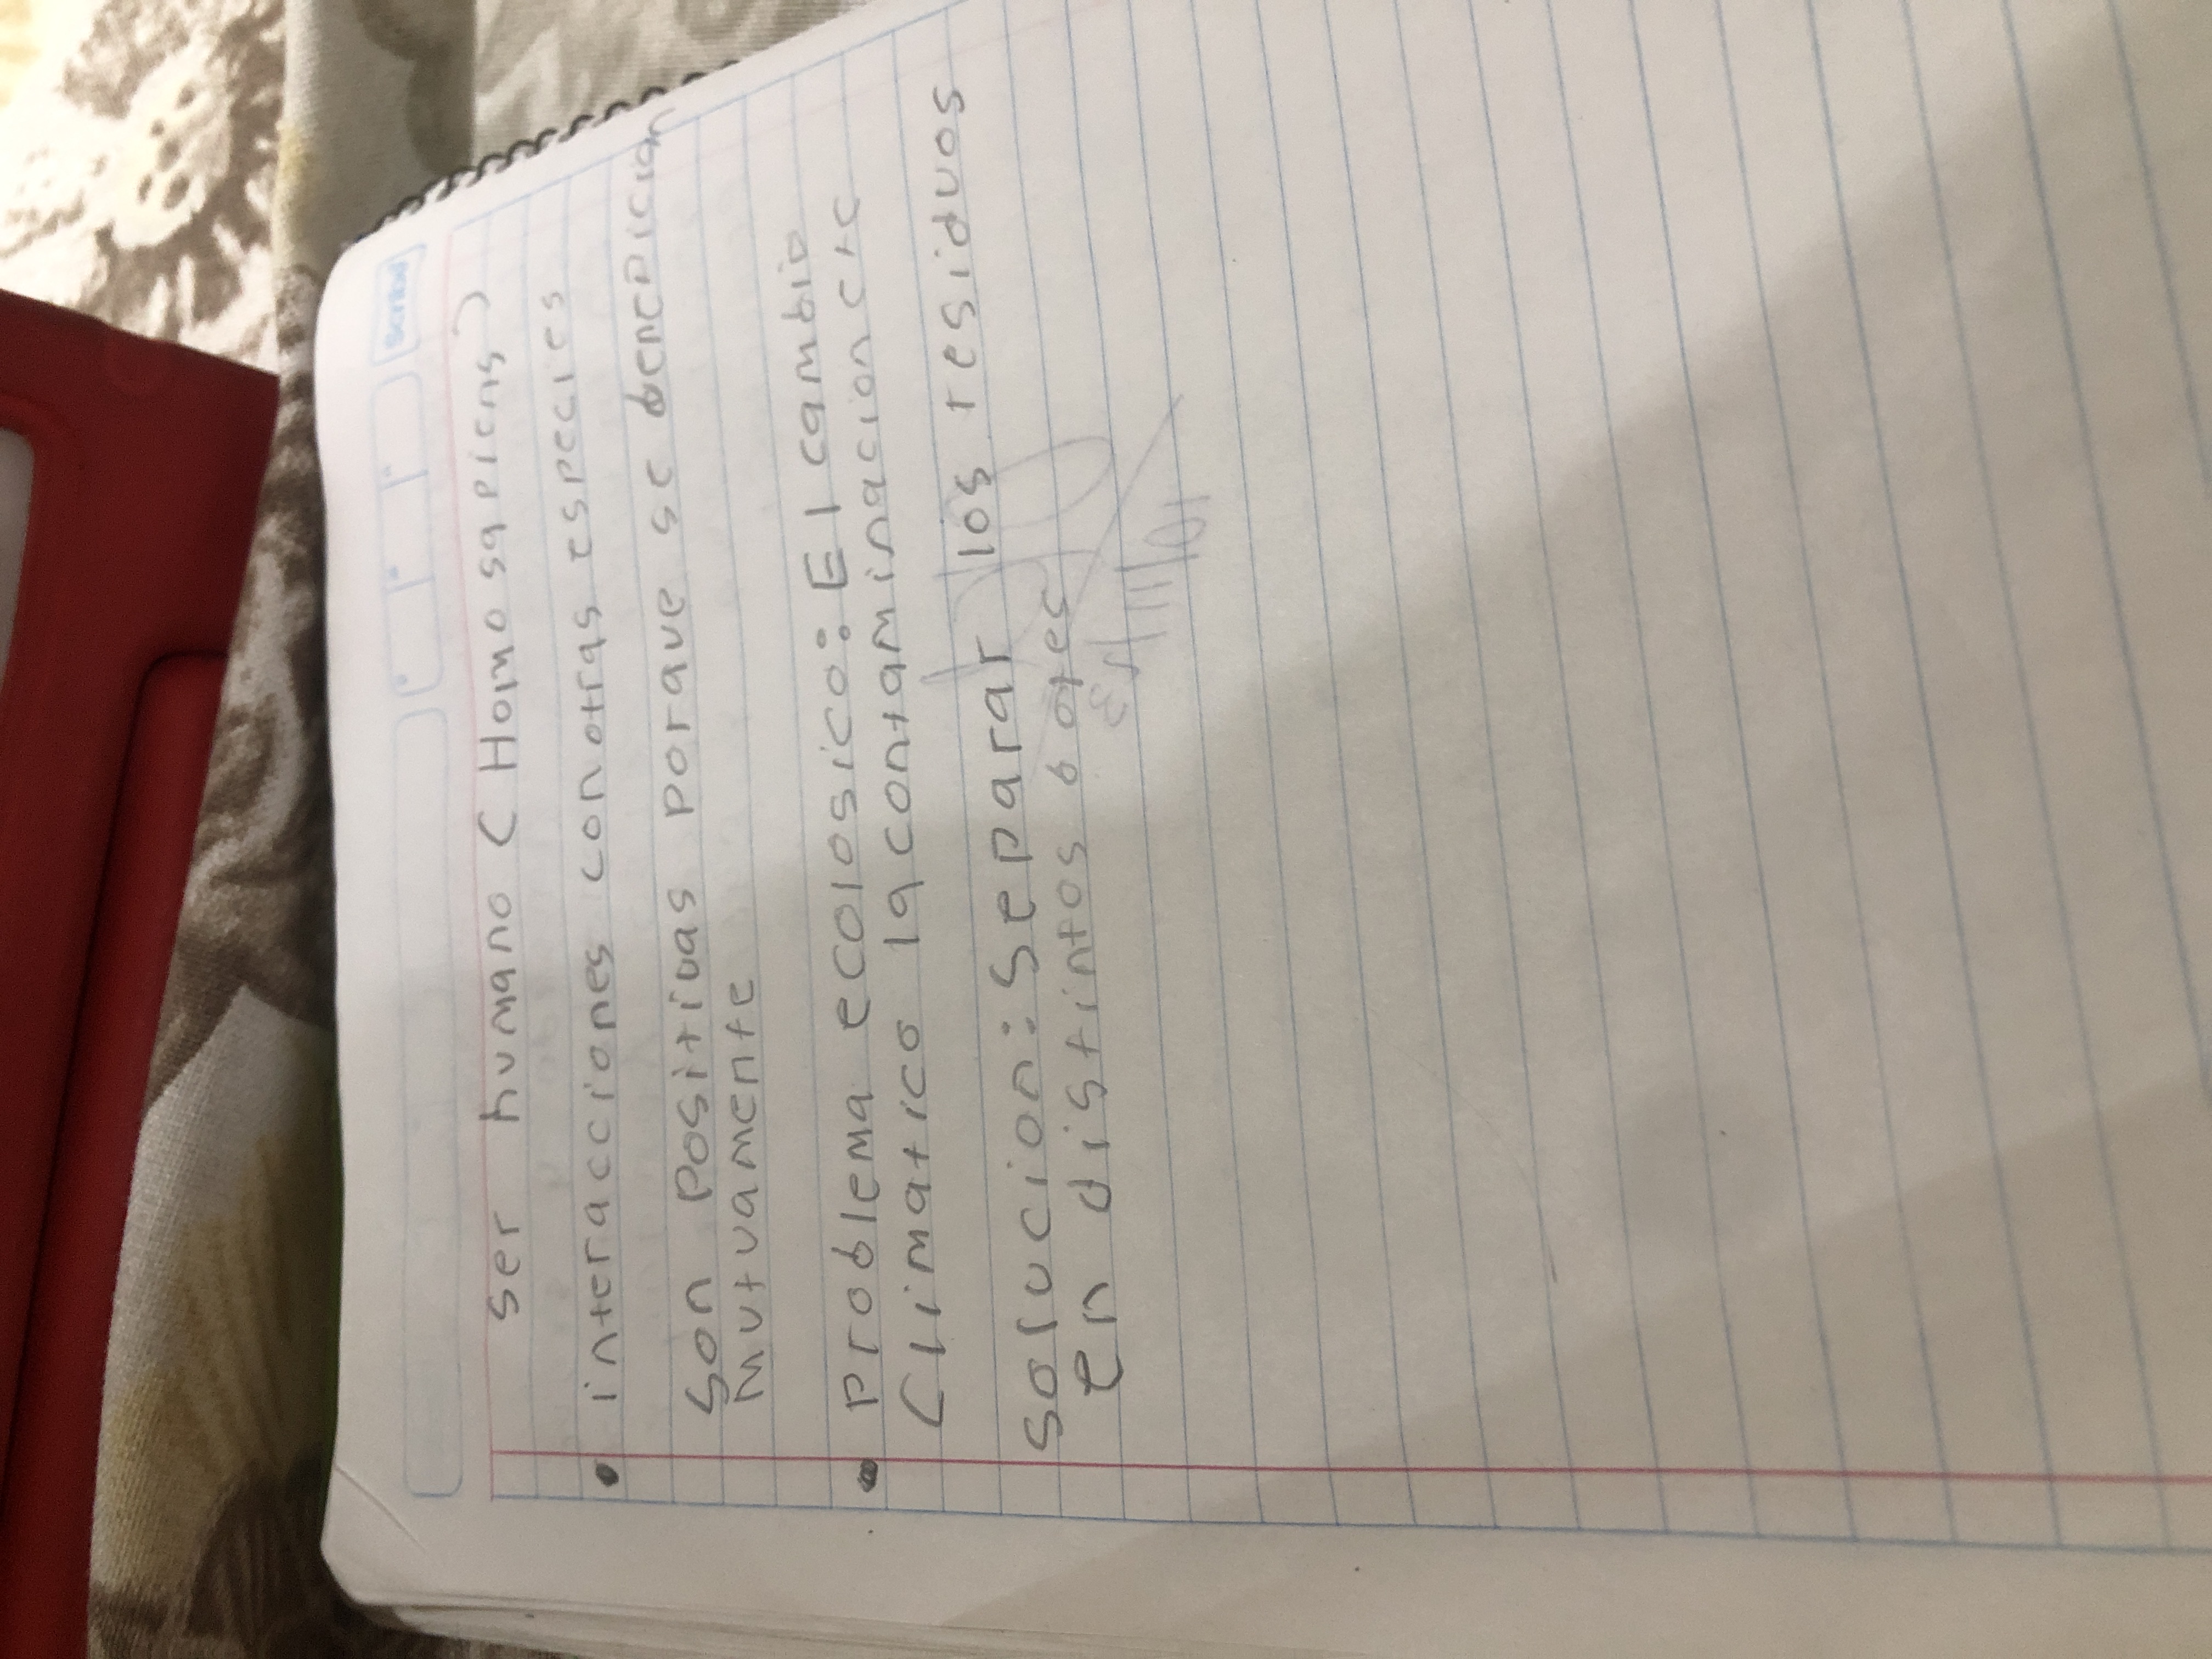 Scribe
ser humano (Homo sapiens)
• interacciones con otras especies
Son Positivas Porque se benePician
Mutuamente
• Problema ecolosico: El cambio
Climatico la contaminacion etc
solucion: Separar los residuos
en distintos botes